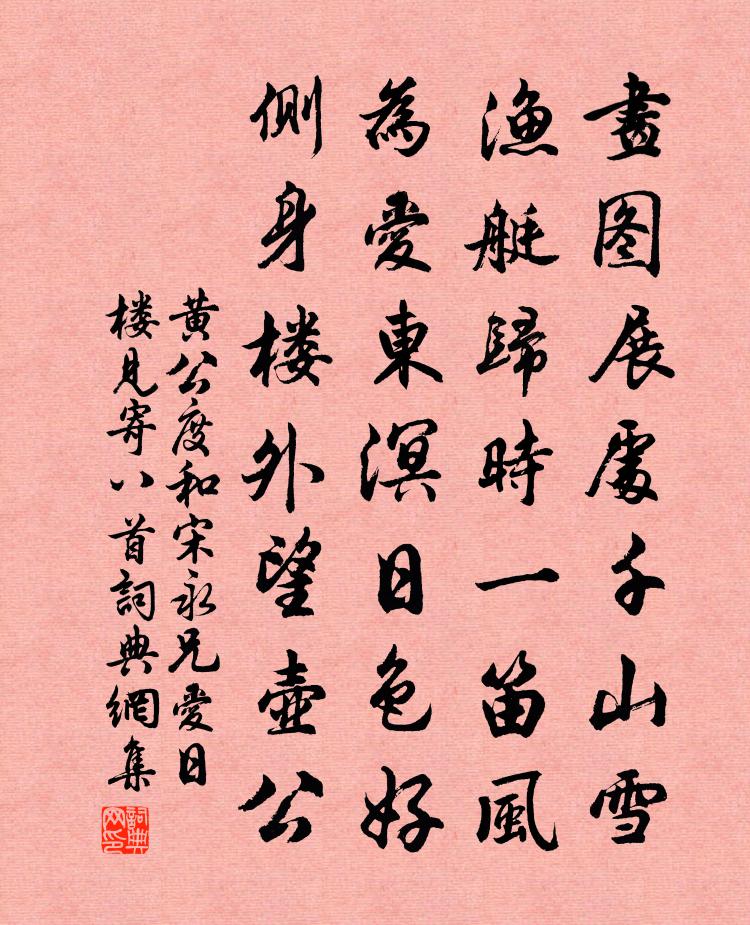 畫图展處千山雪
漁艇歸時一笛風
為愛東溟日色好
側身楼外望壺公
黄公度和宋永兄愛日
楼見寄八首詞典網集
詞典网印